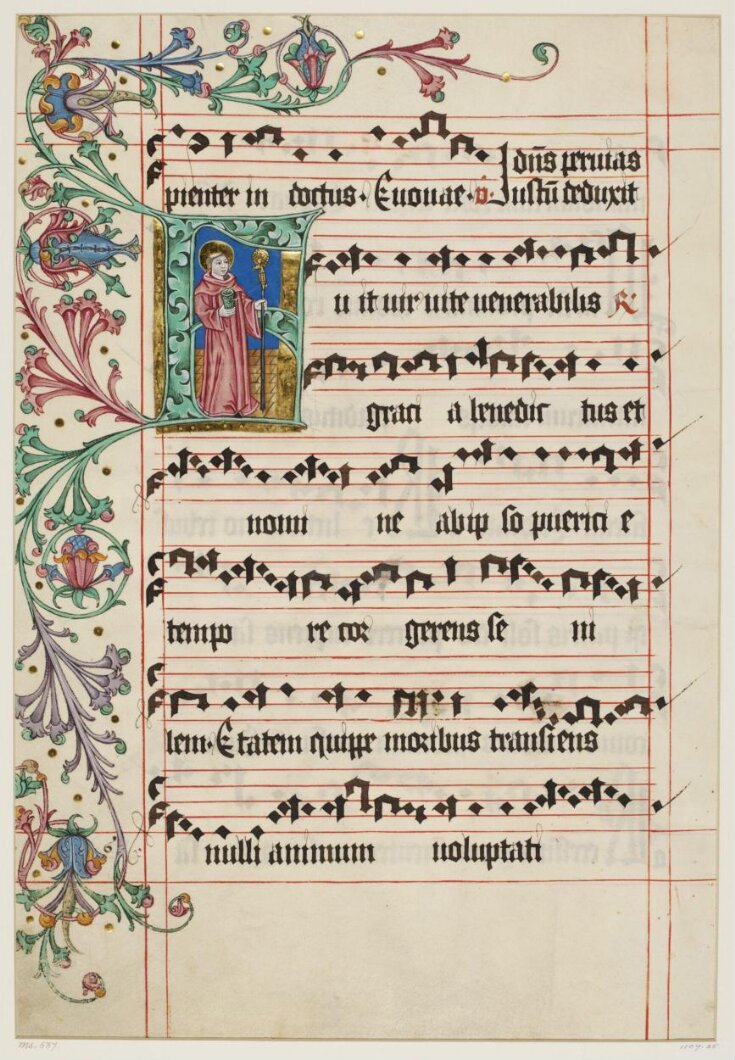 dn̄s per uias
pienter in doctus. Euouae. v. Iustū deduxit
F u it uir uite uenerabilis R
graci a benedic tus et
nomi ne ab ip so puerici e
tempo re cor gerens se ni
lem. Etatem quippe moribus transiens
nulli animum uoluptati